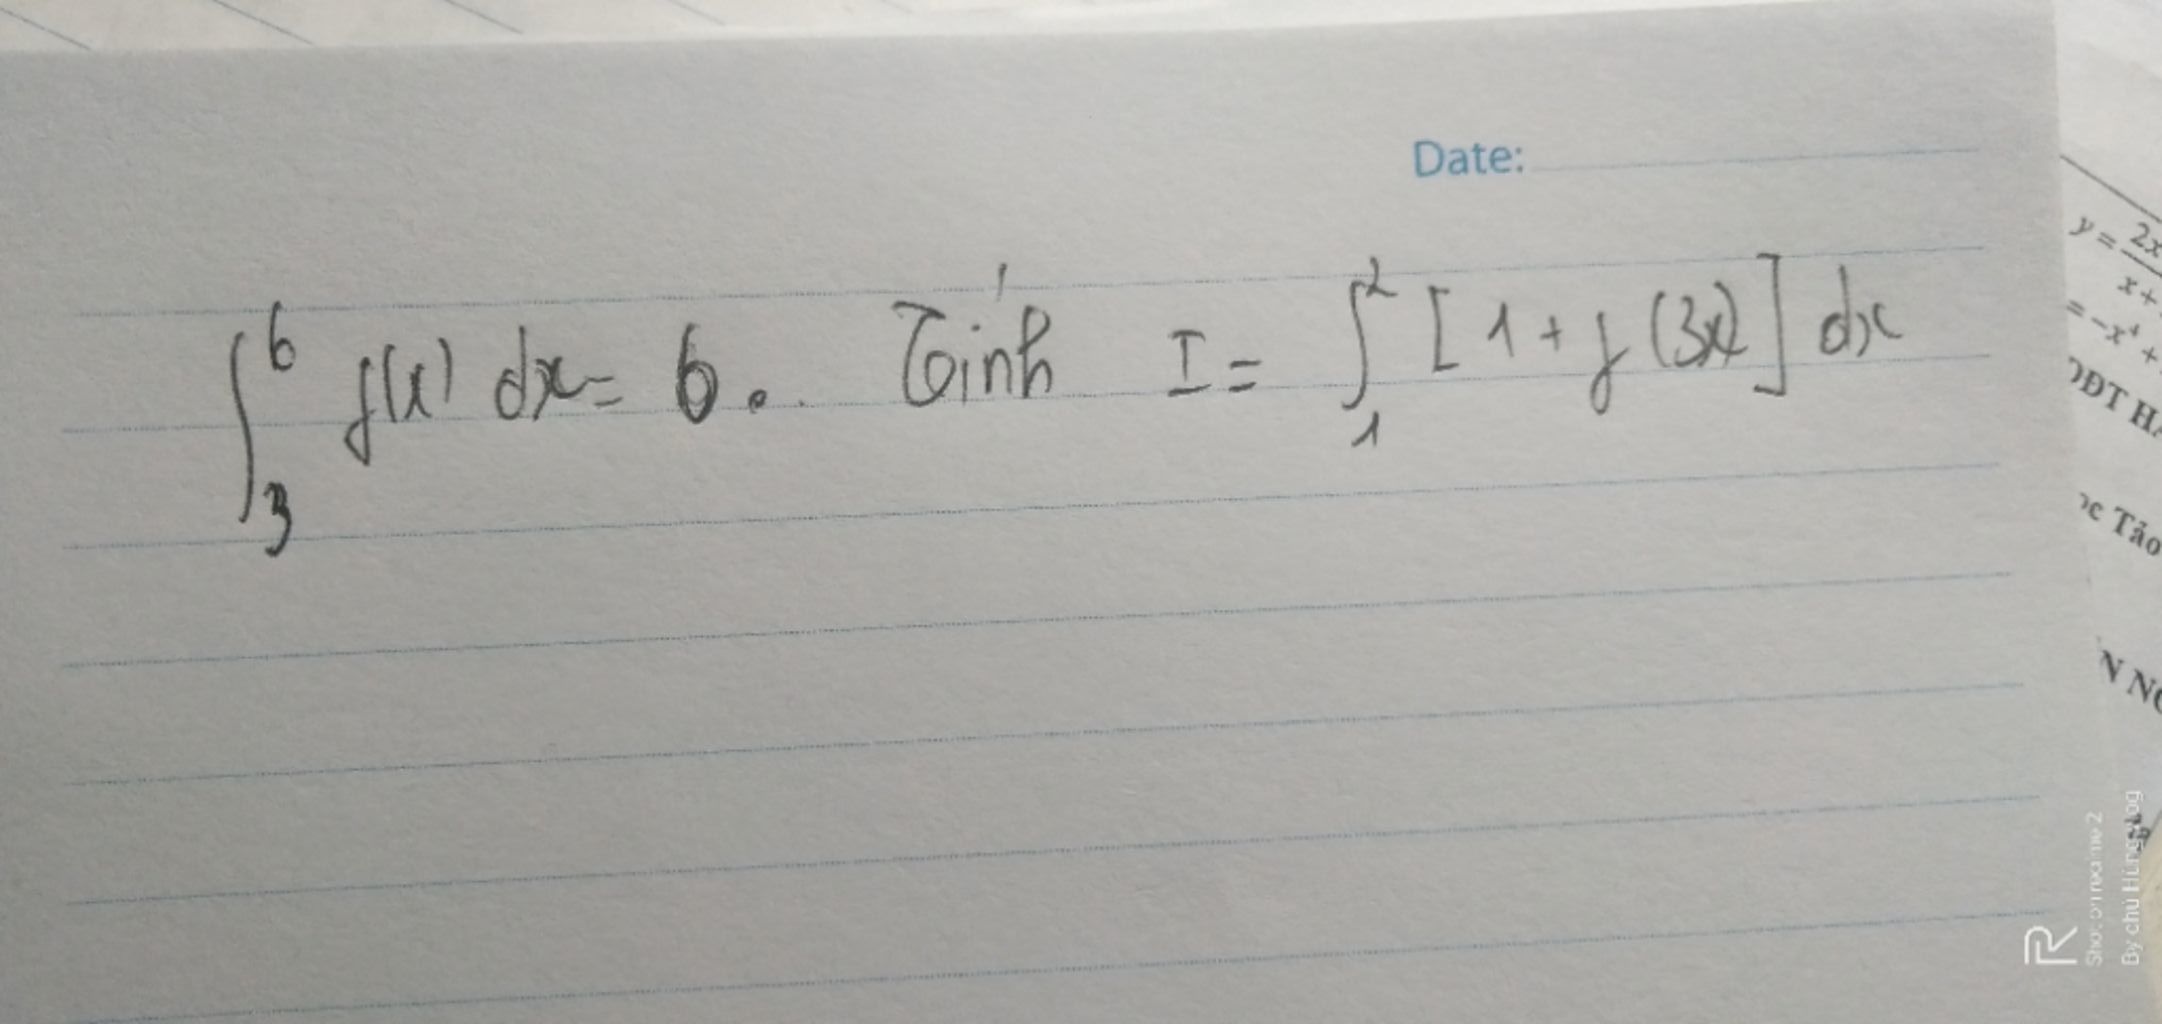 Date:
∫₃⁶ f(x) dx = 6. Tính I = ∫₁² [1 + f(3x)] dx
y = 2x
x+
= -x⁴ +
ĐT HÀ
ọc Tảo
N NG
Shot on realme 2
By chú Hùng